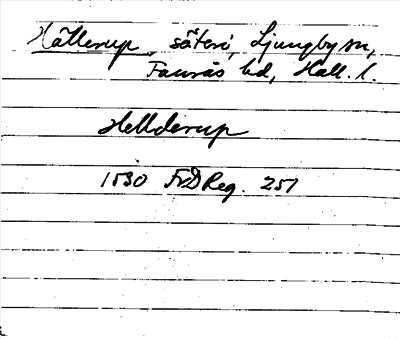 Hällerup, säteri, Ljungby sn,
Faurås hd, Hall. l.
Hellderup
1530 FrDReg. 251